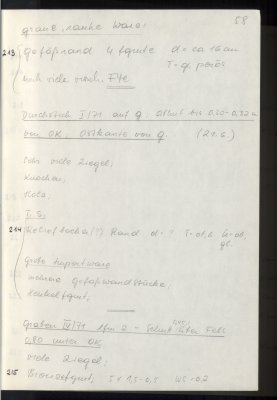 graue, rauhe Ware:
58
213 Gefäßrand 4 Fgmte d = ca 16 cm
T - g. porös
noch viele versch. Fgte
Durchstich I/71 auf g. Schutt bis 0,20-0,32 m
von OK, Ostkante von g. (21.6.)
Sehr viele Ziegel;
Knochen;
Holz;
T. S.
214 Reliefbecher(?) Rand d = ?
gl.
grobe Importware
mehrere Gefäßwandstücke;
Henkelfgmt;
Graben IV/71 lfm 2 - Schutt über Fels
0,80 unter OK
viele Ziegel;
215 Bronzefgmt; 5 x 1,5-0,5 WS = 0,2